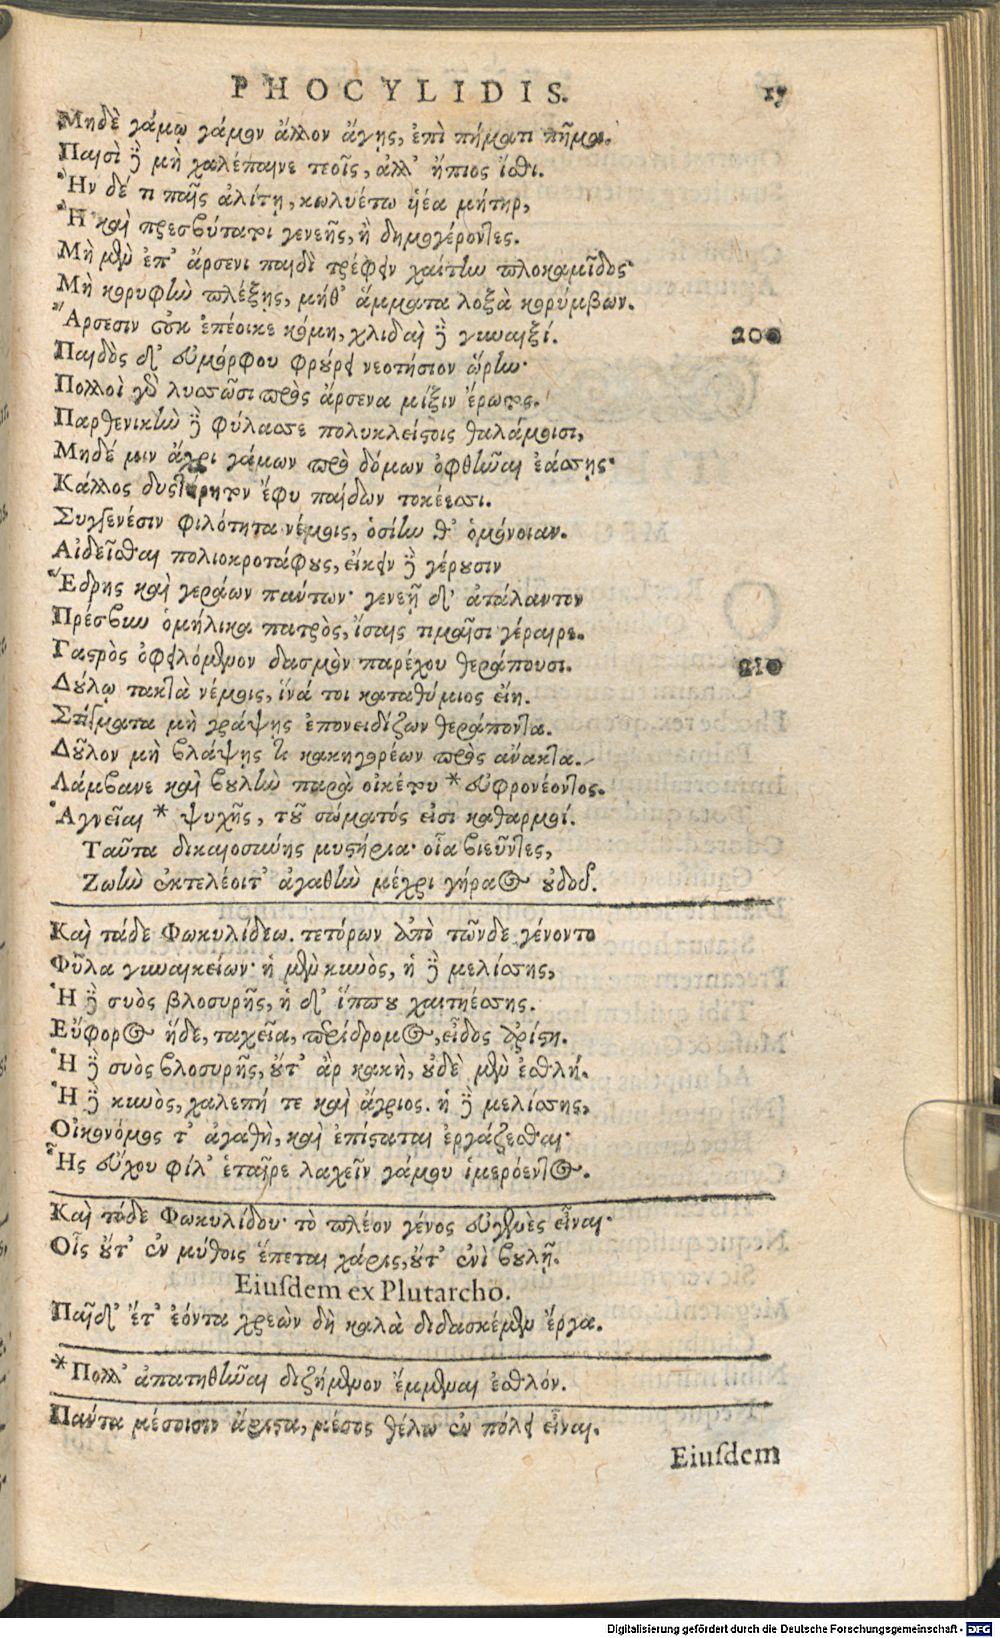 PHOCYLIDIS. 17
Μηδὲ γάμῳ γάμον ἄλλον ἄγῃς, ἐπὶ πήματι πῆμα.
Παισὶ δὲ μὴ χαλέπαινε τεοῖς, ἀλλ' ἤπιος ἴσθι.
Ἢν δέ τι παῖς ἀλίτῃ, κωλυέτω ὑέα μήτηρ,
Ἢ καὶ πρεσβύτατοι γενεῆς, ἢ δημογέροντες.
Μὴ μὲν ἐπ' ἄρσενι παιδὶ τρέφειν χαίτην πλοκαμῖδος
Μὴ κορυφὴν πλέξῃς, μήθ' ἅμματα λοξὰ κορύμβων.
Ἄρσεσιν οὐκ ἐπέοικε κόμη, χλιδαὶ δὲ γυναιξί. 200
Παιδὸς δ' εὐμόρφου φρούρει νεοτήσιον ὥρην·
Πολλοὶ γὸ λυσσῶσι πρὸς ἄρσενα μίξιν ἔρωτος.
Παρθενικὴν δὲ φύλασσε πολυκλείστοις θαλάμοισι,
Μηδέ μιν ἄχρι γάμων πρὸ δόμων ὀφθῆναι ἐάσῃς·
Κάλλος δυστήρητον ἔφυ παίδων τοκέεσσι.
Συγγενέσιν φιλότητα νέμοις, ὁσίην θ' ὁμόνοιαν.
Αἰδεῖσθαι πολιοκροτάφους, εἴκειν δὲ γέρουσιν
Ἕδρης καὶ γεράων πάντων· γενεῇ δ' ἀτάλαντον
Πρέσβυν ὁμήλικα πατρὸς, ἴσαις τιμαῖσι γέραιρε.
Γαστρὸς ὀφειλόμενον δασμὸν παρέχου θεράπουσι. 210
Δούλῳ τακτὰ νέμοις, ἵνά τοι καταθύμιος εἴη.
Στίγματα μὴ γράψῃς ἐπονειδίζων θεράποντα.
Δοῦλον μὴ βλάψῃς τι κακηγορέων πρὸς ἄνακτα.
Λάμβανε καὶ βουλὴν παρὰ οἰκέτου * εὐφρονέοντος.
Ἁγνεῖαι * ψυχῆς, τοῦ σώματός εἰσι καθαρμοί.
Ταῦτα δικαιοσύνης μυστήρια· οἷα βιεῦντες,
Ζωὴν ἐκτελέοιτ' ἀγαθὴν μέχρι γήραος οὐδοῦ.
Καὶ τάδε Φωκυλίδεω. τετόρων ἀπὸ τῶνδε γένοντο
Φῦλα γυναικείων· ἡ μὲν κυνὸς, ἡ δὲ μελίσσης,
Ἡ δὲ συὸς βλοσυρῆς, ἡ δ' ἵππου χαιτηέσσης.
Εὔφορος ἥδε, ταχεῖα, περίδρομος, εἶδος ἀρίστη.
Ἡ δὲ συὸς βλοσυρῆς, οὔτ' ἂρ κακὴ, οὐδὲ μὲν ἐσθλή.
Ἡ δὲ κυνὸς, χαλεπή τε καὶ ἄγριος. ἡ δὲ μελίσσης,
Οἰκονόμος τ' ἀγαθὴ, καὶ ἐπίσταται ἐργάζεσθαι·
Ἧς εὔχου φίλ' ἑταῖρε λαχεῖν γάμου ἱμερόεντος.
Καὶ τόδε Φωκυλίδου· τὸ πλέον γένος εὐγενὲς εἶναι·
Οἷς οὔτ' ἐν μύθοις ἕπεται χάρις, οὔτ' ἐνὶ βουλῇ.
Eiuſdem ex Plutarcho.
Παῖδ' ἔτ' ἐόντα χρεὼν δὴ καλὰ διδασκέμεν ἔργα.
*Πολλ' ἀπατηθῆναι διζήμενον ἔμμεναι ἐσθλόν.
Πάντα μέσοισιν ἄριστα, μέσος θέλω ἐν πόλει εἶναι.
Eiuſdem
Digitalisierung gefördert durch die Deutsche Forschungsgemeinschaft - DFG